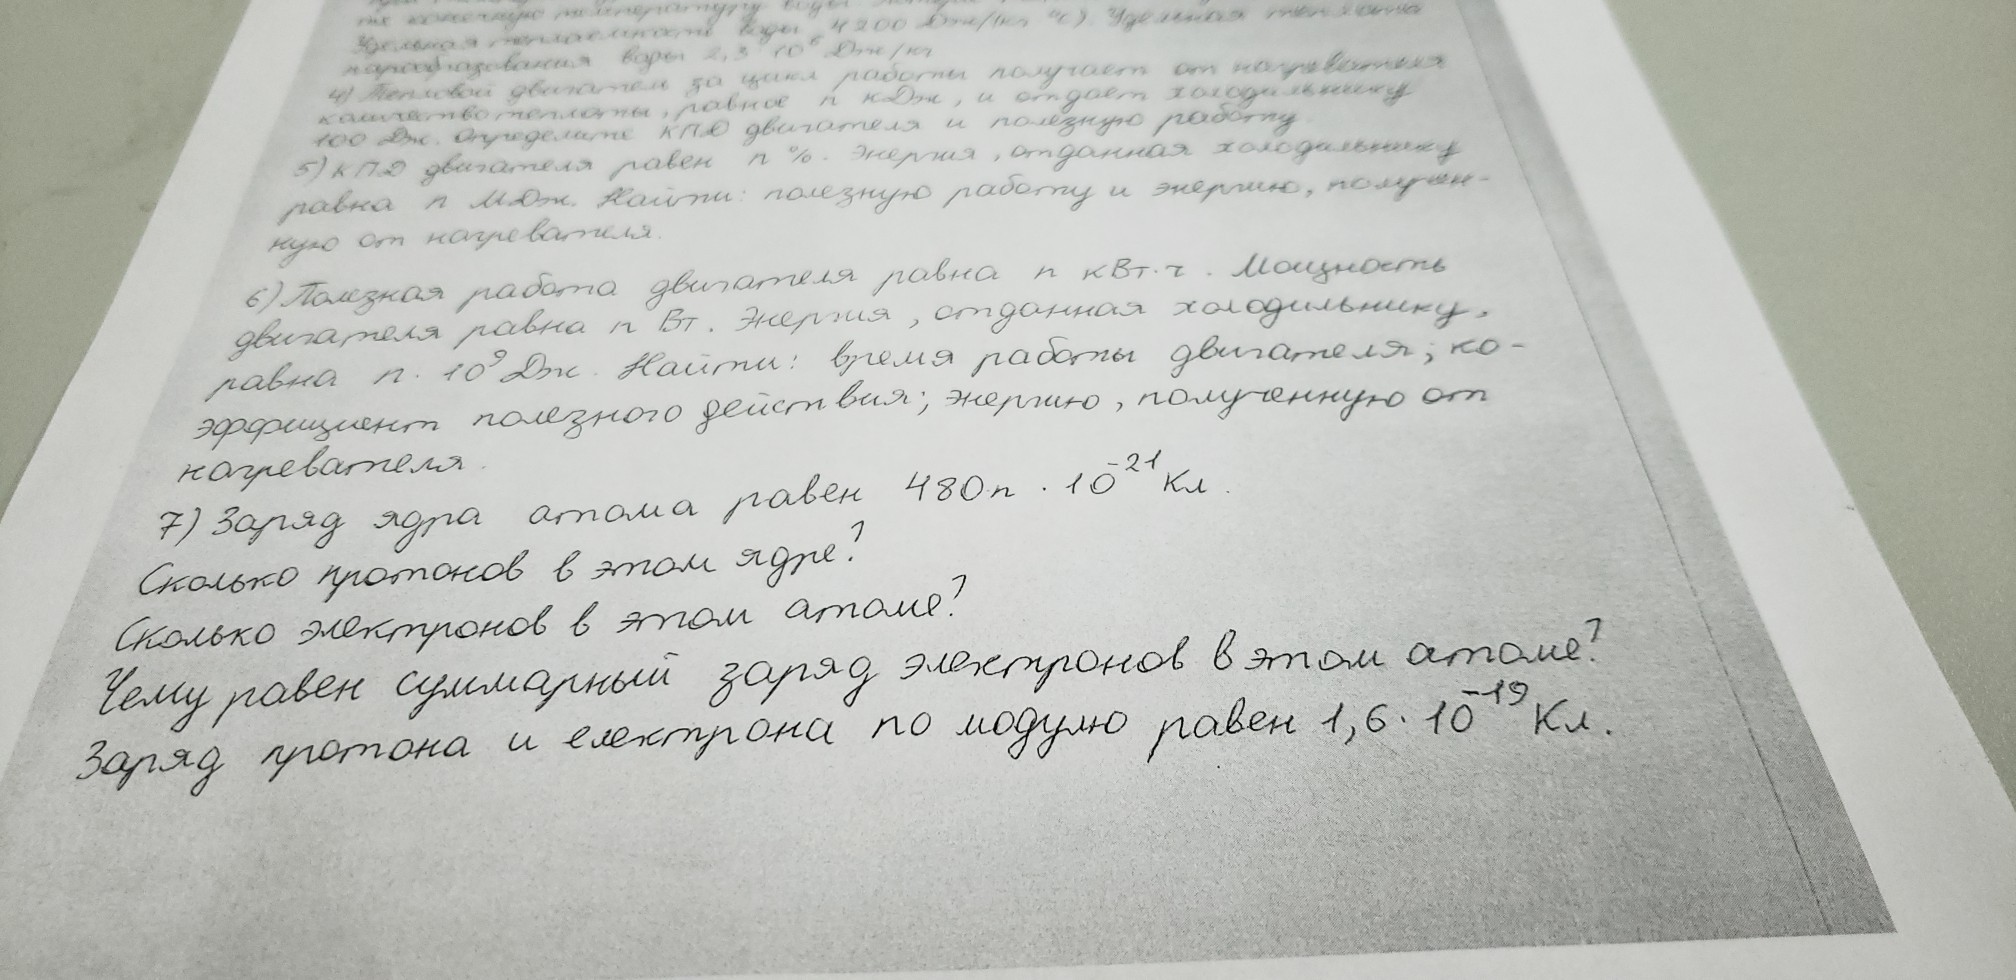 те конечную температуру воды.
Удельная теплоемкость воды 4200 Дж/(кг °С). Удельная теплота
парообразования воды 2,3 10⁶ Дж/кг
4) Тепловой двигатель за цикл работы получает от нагревателя
количество теплоты, равное n кДж, и отдает холодильнику
100 Дж. Определите КПД двигателя и полезную работу.
5) КПД двигателя равен n %. Энергия, отданная холодильнику
равна n МДж. Найти: полезную работу и энергию, получен-
ную от нагревателя.
6) Полезная работа двигателя равна n кВт·ч. Мощность
двигателя равна n Вт. Энергия, отданная холодильнику,
равна n · 10⁹ Дж. Найти: время работы двигателя; ко-
эффициент полезного действия; энергию, полученную от
нагревателя.
7) Заряд ядра атома равен 480n · 10⁻²¹ Кл.
Сколько протонов в этом ядре?
Сколько электронов в этом атоме?
Чему равен суммарный заряд электронов в этом атоме?
Заряд протона и електрона по модулю равен 1,6 · 10⁻¹⁹ Кл.